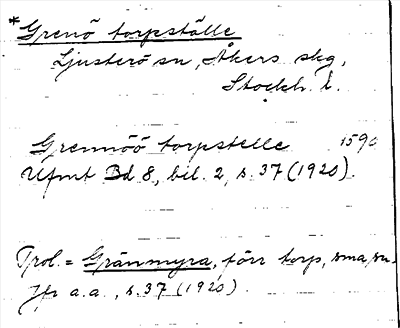 * Grenö torpställe
Ljusterö sn, Åkers skg,
Stockh. l.
Grennöö torpstelle 1590
Ufmt Bd 8, bil. 2, s. 37 (1920).
Trol. = Gränmyra, förr torp, sma, sn.
Jfr a. a., s. 37 (1920).